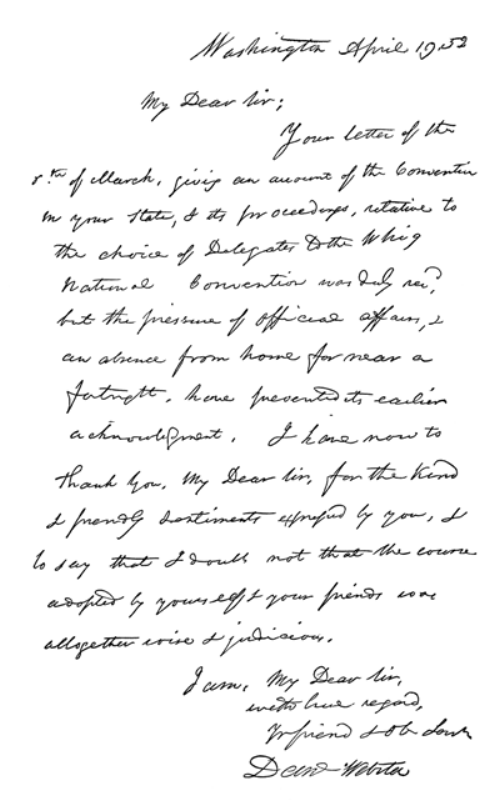 Washington April 19 52
My Dear Sir;
Your letter of the
8th of March, giving an account of the Convention
in your State, & its proceedings, relative to
the choice of Delegates to the Whig
National Convention was duly recd,
but the pressure of official affairs, &
an absence from home for near a
fortnight, have prevented its earlier
acknowledgment. I have now to
thank you, My Dear Sir, for the kind
& friendly sentiments expressed by you, &
to say that I doubt not that the course
adopted by yourself & your friends was
altogether wise & judicious.
I am, My Dear Sir,
with true regard,
Yr friend & Ob. Servt
Danl Webster